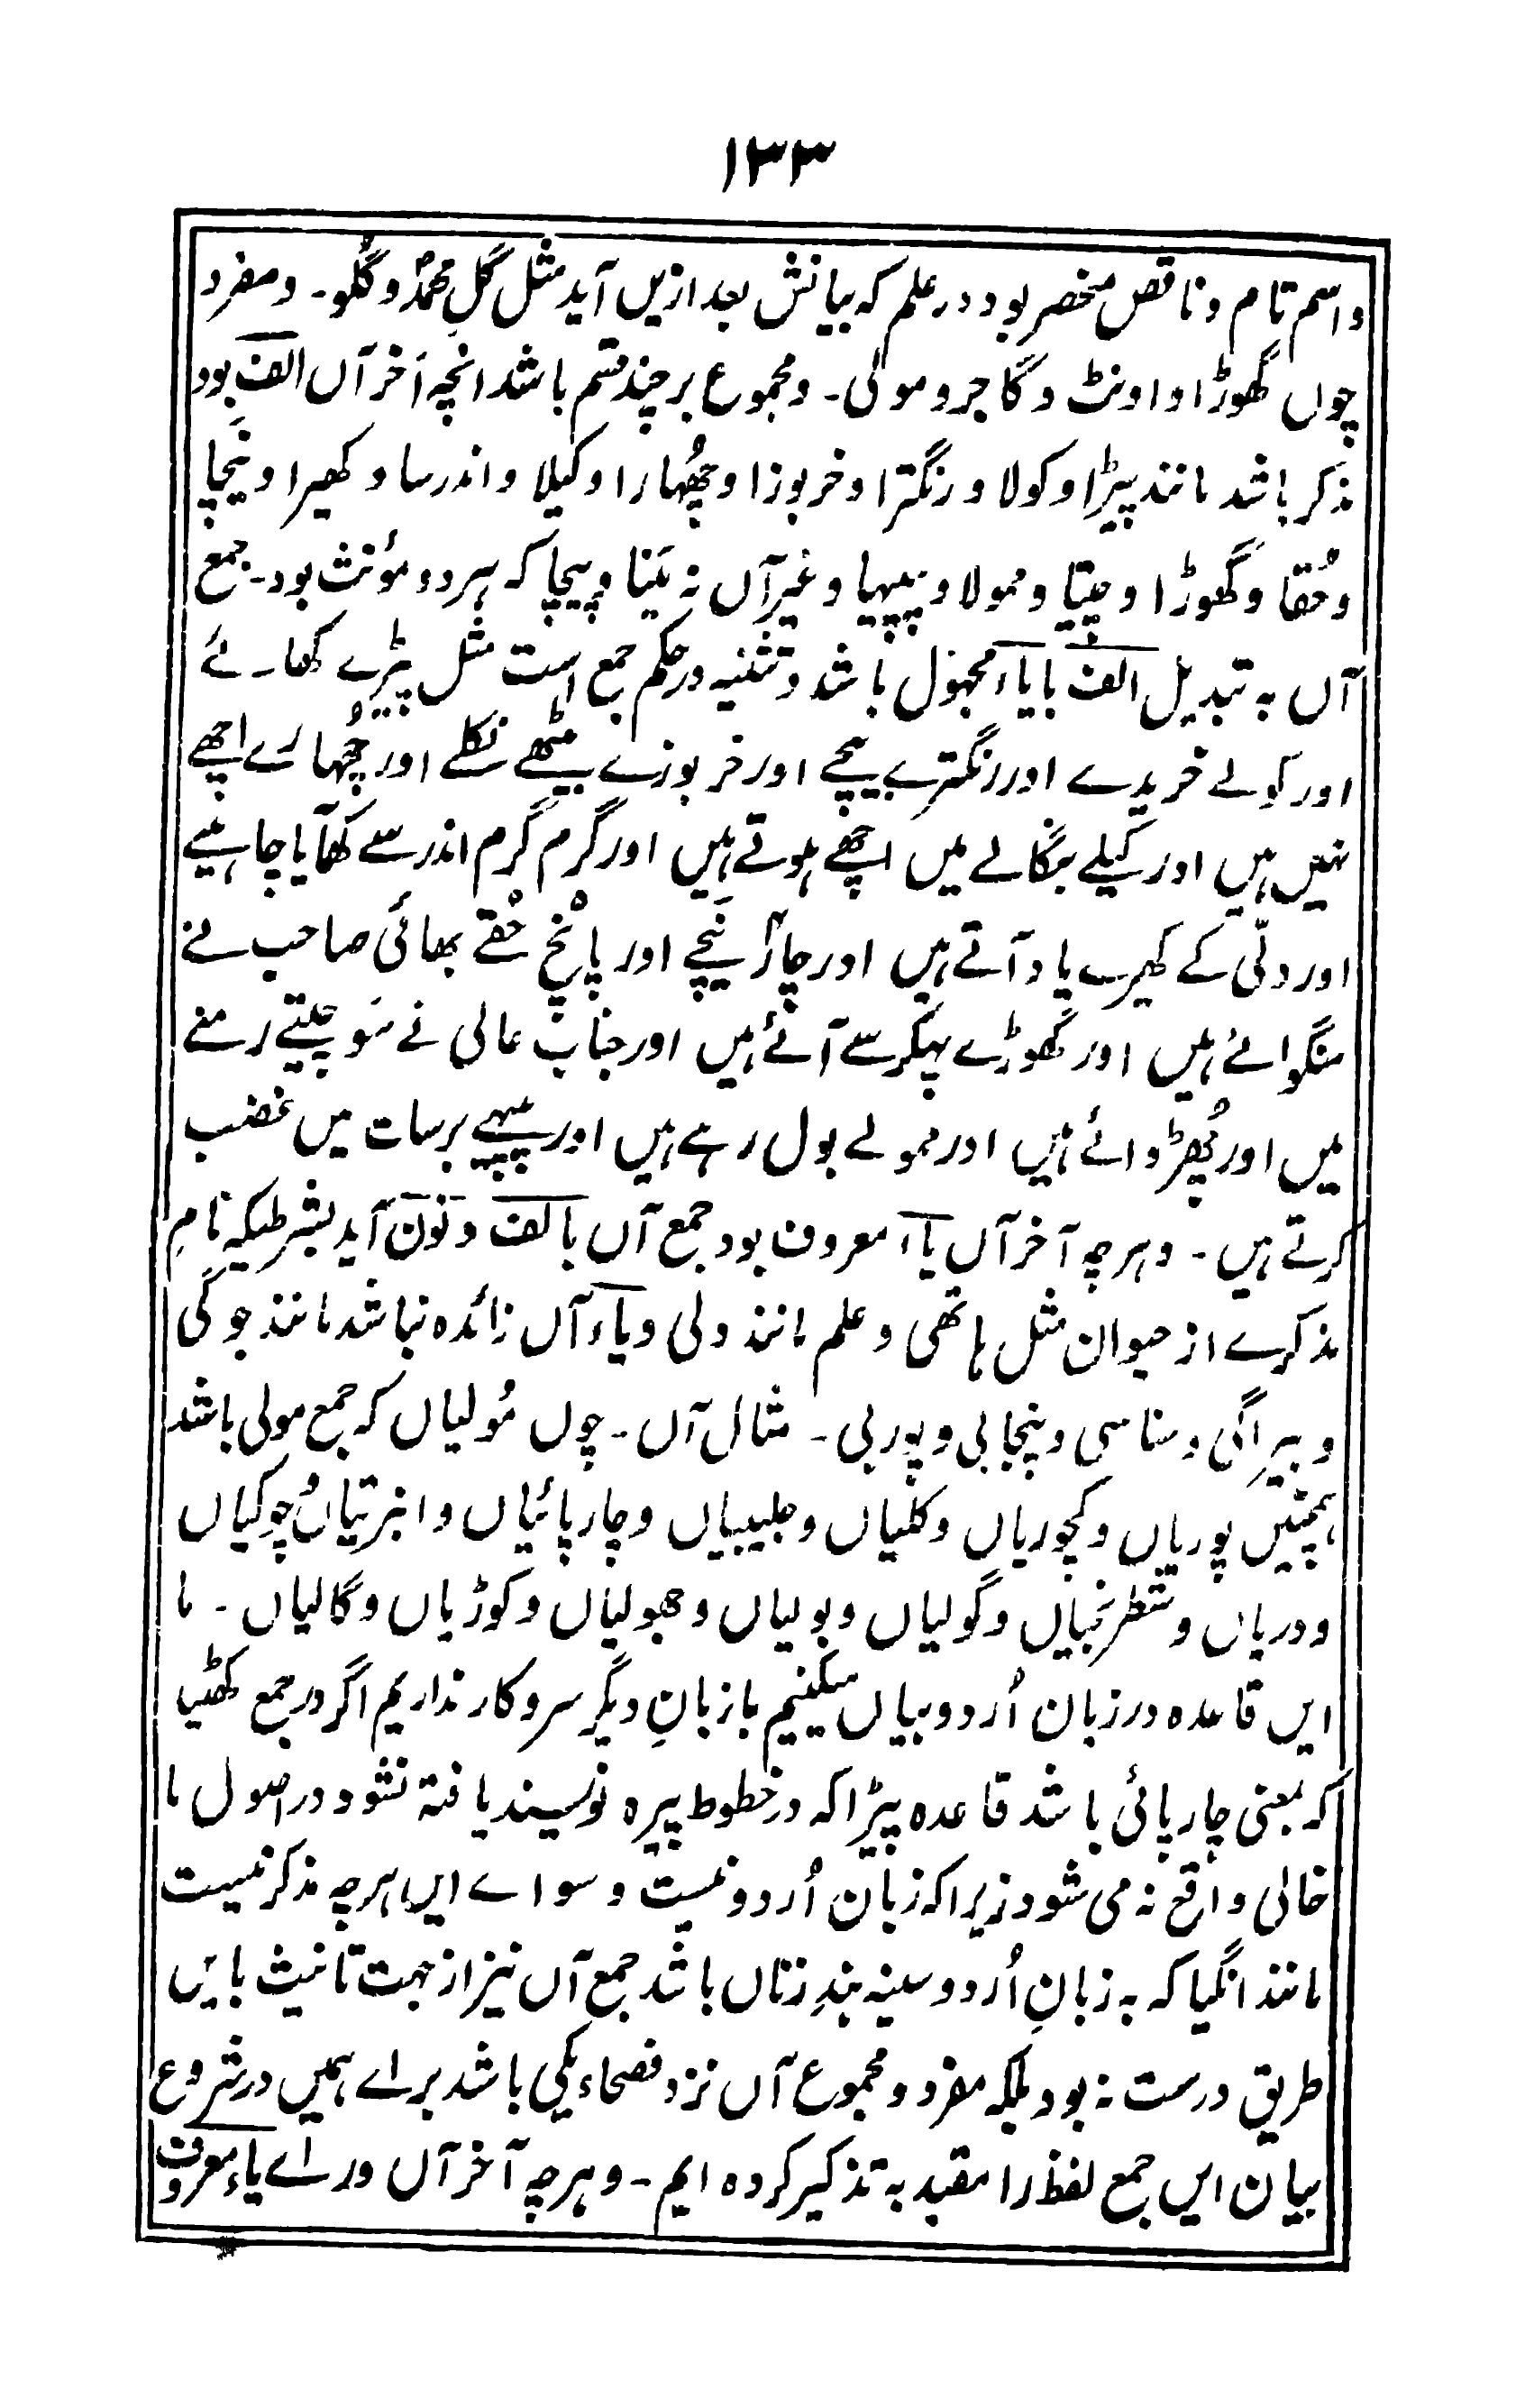 ۱۳۳
واسم تام وناقص منحصر بود در علم که بیانش بعد ازیں آید مثل گلِ محمدؐ وگُلو۔ ومفرد
چوں گھوڑا واونٹ وگاجر ومولی۔ ومجموع برچند قسم باشد انچہ آخر آں الف بود
مذکر باشد مانند پیڑا وکولا ورنگترا وخربوزا وچھُہارا وکیلا واندرسا وکھیرا ونَیچا
وحُقا وگھوڑا وچیتا وممولا وپپیہا وغیر آں نہ مَینا وپیچا کہ ہر دو مؤنث بود۔ جمع
آں بہ تبدیل الف بایاء مجہول باشد وتثنیہ درحکم جمع است مثل پیڑے کھائے
اور کولے خریدے اور رنگترے بیچے اور خربوزے میٹھے نکلے اور چُھہارے اچھے
نہیں ہیں اور کیلے بنگالے میں اچھے ہوتے ہیں اور گرم گرم اندرسے کھایا چاہیے
اور دلّی کے کھیرے یاد آتے ہیں اور چار نَیچے اور پانچ حُقے بھائی صاحب نے
منگوائے ہیں اور گھوڑے پہکر سے آئے ہیں اور جناب عالی نے سَو چیتے رمنے
میں اور چھُڑوائے ہیں اور ممولے بول رہے ہیں اور پپیہے برسات میں غضب
کرتے ہیں۔ وہرچہ آخر آں یاء معروف بود جمع آں بالف ونون آید بشرطیکہ نامِ
مذکرے از حیوان مثل ہاتھی وعلم مانند ولی ویاء آں زائدہ نباشد مانند جوگی
وبیراگی وسناسی وپنجابی وپوربی۔ مثال آں۔ چوں مُولیاں کہ جمع مولی باشد
ہمچنیں پوریاں وکچوریاں وکلیاں وجلیبیاں وچارپائیاں وانبرتیاں وچوکیاں
ودریاں وشطرنجیاں وگولیاں وبولیاں وجھولیاں وکوڑیاں وگالیاں۔ ما
ایں قاعدہ در زبان اُردو بیاں میکنیم بازبانِ دیگر سروکار نداریم اگر در جمع کھٹیا
کہ بمعنی چارپائی باشد قاعدہ پیڑا کہ در خطوط پیرہ نویسند یافتہ نشود در اصول ما
خالی واقع نہ می شود زیرا کہ زبان اُردو نیست وسواے ایں ہرچہ مذکر نیست
مانند انگیا کہ بہ زبانِ اُردو سینہ بندِ زناں باشد جمع آں نیز از جہت تانیث بایں
طریق درست نہ بود بلکہ مفرد ومجموع آں نزد فصحاء یکی باشد براے ہمیں در شروع
بیان ایں جمع لفظ را مقید بہ تذکیر کردہ ایم۔ وہرچہ آخر آں وراے یاء معروف